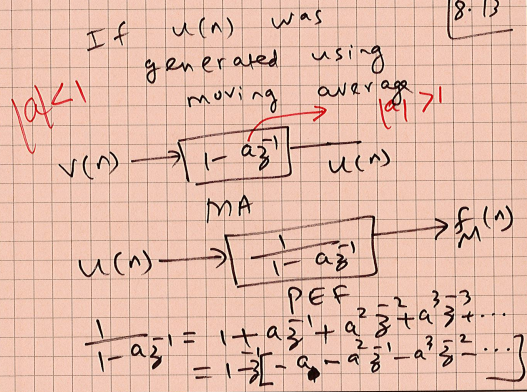 8.13
If u(n) was
generated using
moving average
|a|<1
|a|>1
v(n) 1 - az⁻¹ u(n)
MA
u(n) 1/(1 - az⁻¹) f_M(n)
PEF
1/(1 - az⁻¹) = 1 + az⁻¹ + a²z⁻² + a³z⁻³ + ...
= 1 - z⁻¹[-a - a²z⁻¹ - a³z⁻² - ...]